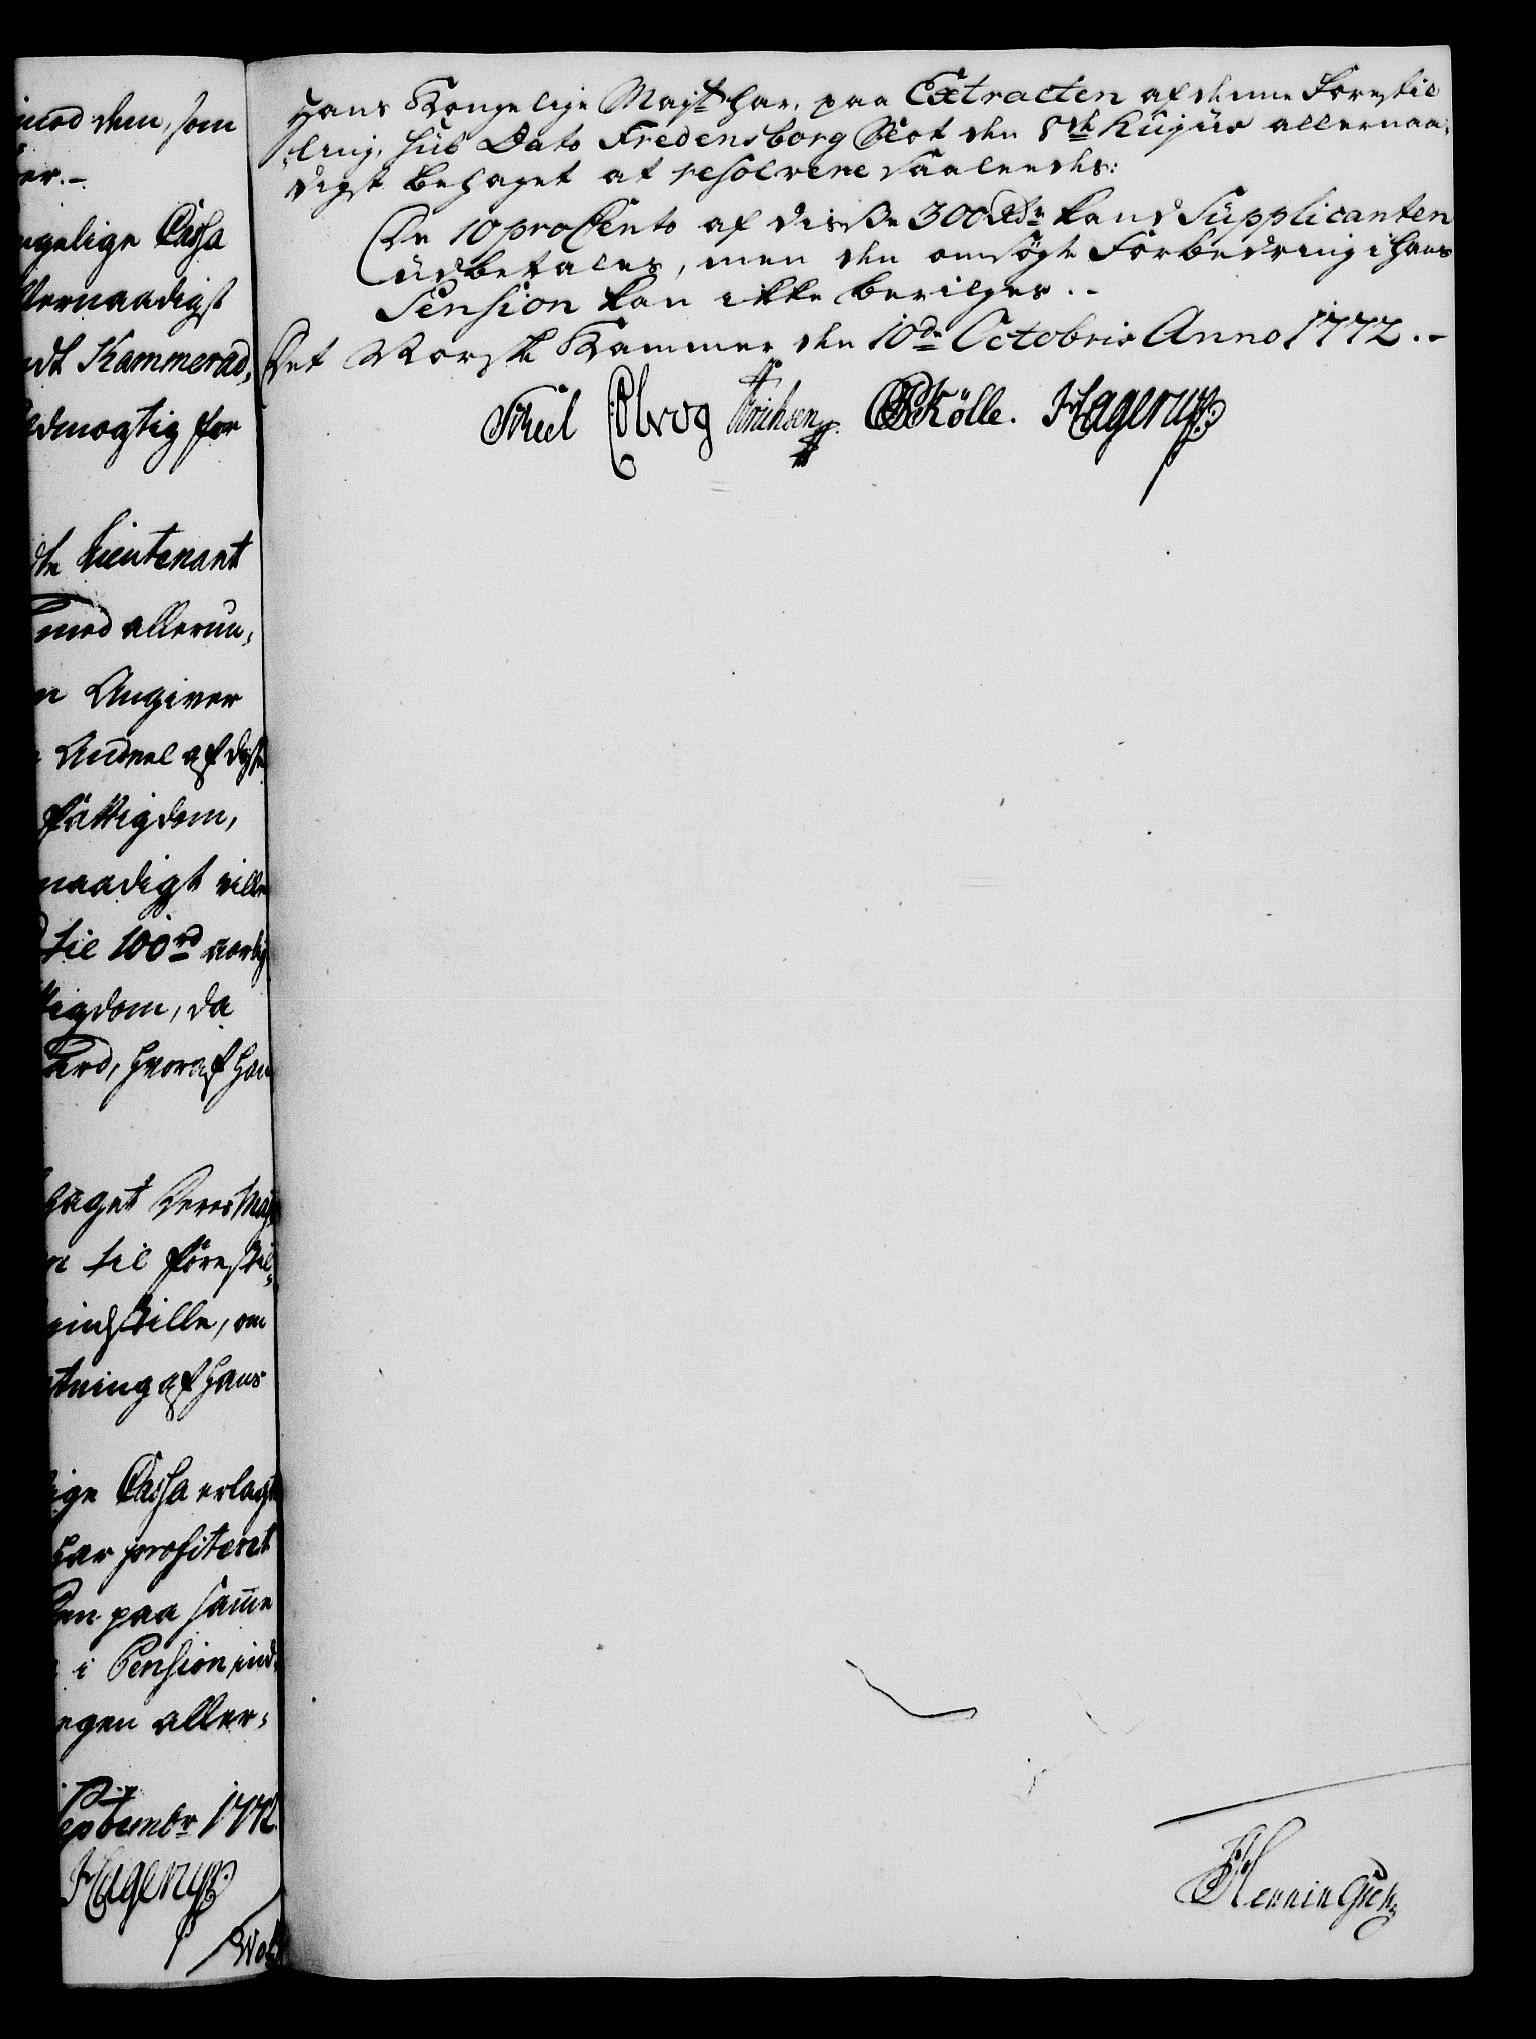 mod dem, som
er.-
ngelige Cassa
llernaadigst
ndt Kammerad,
dmogtig for
dte Lieutenant
med allerun,
n Angiver
Andeel af diſse
fattigdom,
naadigst ville
til 100 rd aarlig
tigdom, da
hvoraf han
haget Deres May
n til förestil,
indstille, om
tning af hans
ige Cassa erlagt
har profiteret
paa samme
i Pension ind,
egen aller,
eptembr 1772.
Hagerup
Hans Kongelige Mayt har, paa Extracten af denne Forestil,
ling, sub Dato Fredensborg Slot den 8de hujus allernaa,
digst behaget at resolvere saaledes:
De 10 proCento af disse 300 Rdr kand Supplicanten
udbetales, men den ansögte Forbedring i hans
Pension kan ikke bevilges.-
Det Norske Kammer den 10de Octobris Anno 1772.-
Scheel Holvog Erichsen. Kölle. Hagerup
Henningsen